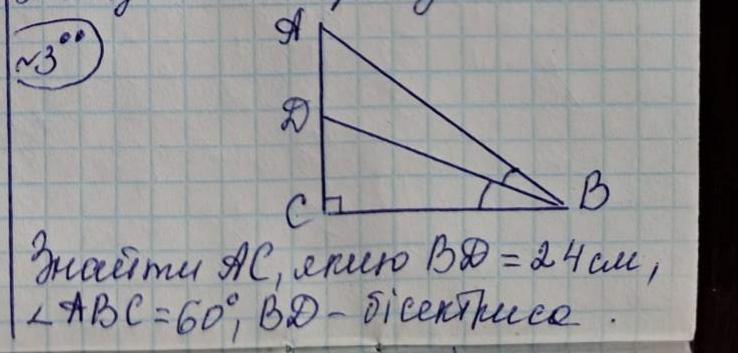 ~3°°
A
D
C
B
Знайти AC, якщо BD = 24 см,
∠ABC = 60°, BD - бісектриса.